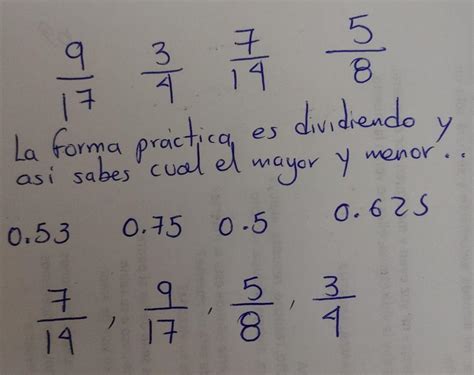 9/17 3/4 7/14 5/8
La forma práctica es dividiendo y
asi sabes cual el mayor y menor..
0.53 0.75 0.5 0.625
7/14, 9/17, 5/8, 3/4